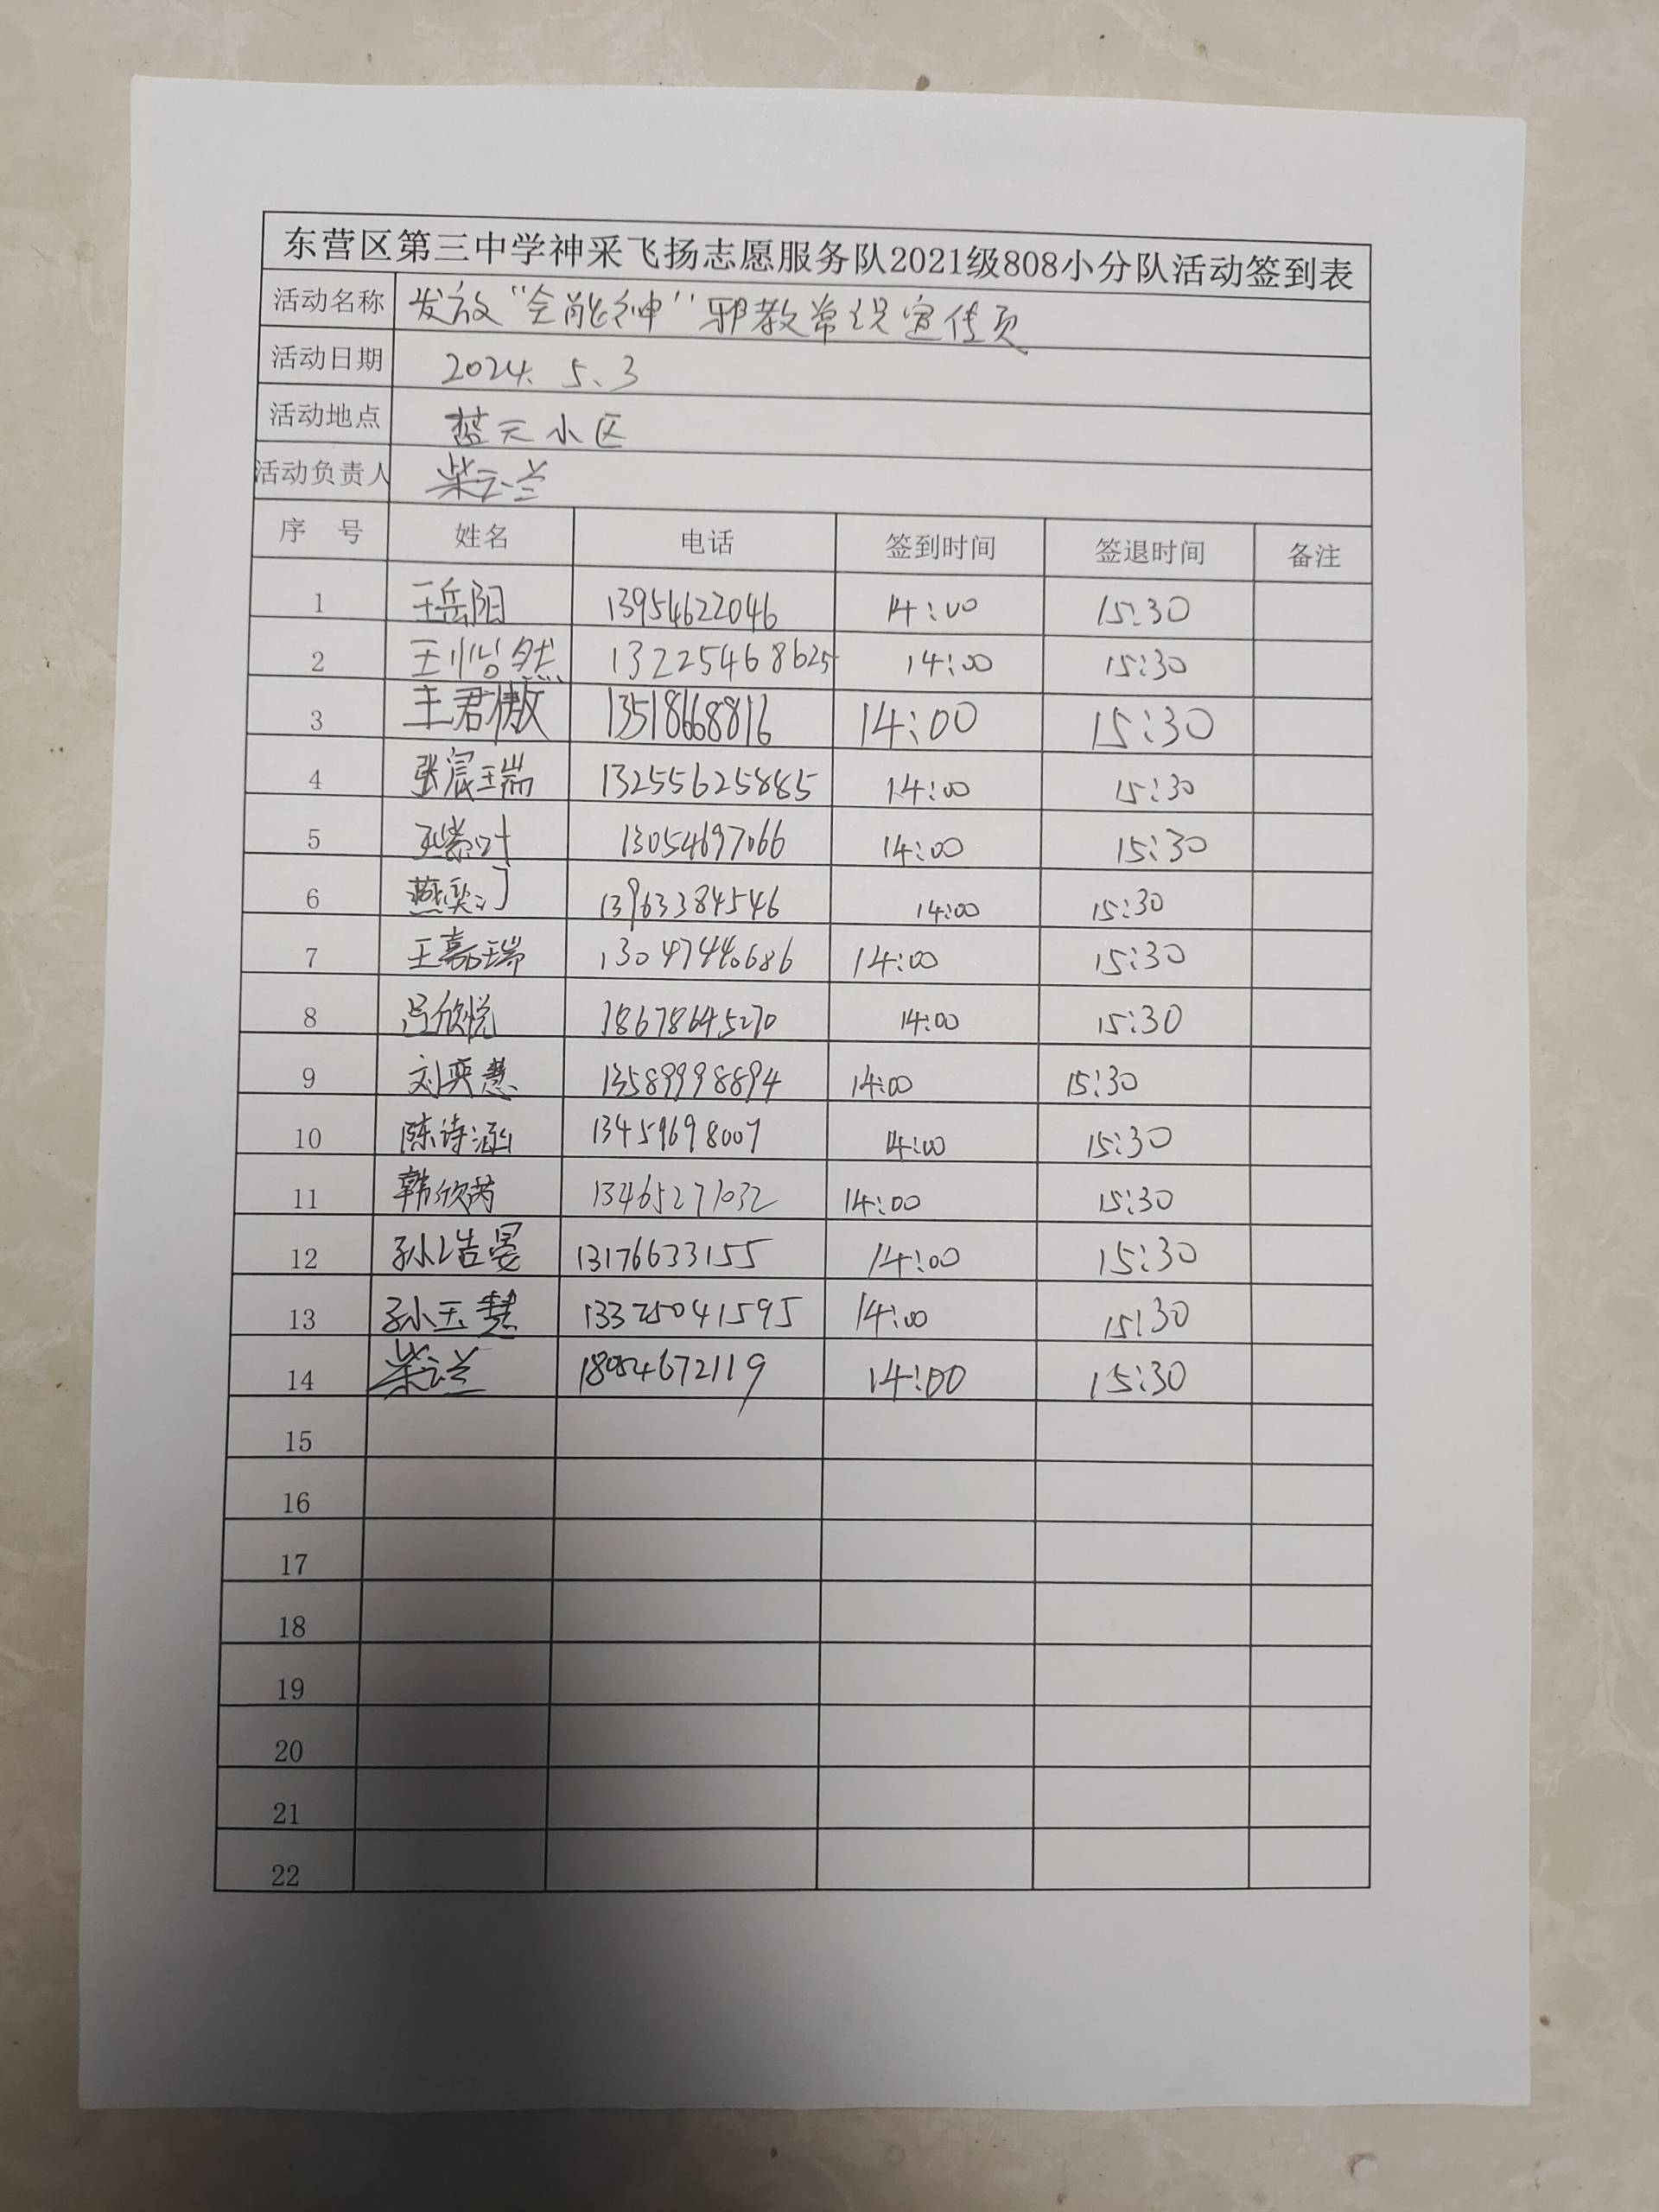 东营区第三中学神采飞扬志愿服务队2021级808小分队活动签到表
活动名称 发放“全能神”邪教常识宣传页
活动日期 2024. 5. 3
活动地点 蓝天小区
活动负责人 柴云兰
序 号 姓名 电话 签到时间 签退时间 备注
1 王岳阳 13954622046 14:00 15:30
2 王怡然 13225468625 14:00 15:30
3 王君傲 13518668816 14:00 15:30
4 张宸瑞 13255625885 14:00 15:30
5 13054697066 14:00 15:30
6 燕奕汀 13963384546 14:00 15:30
7 王嘉瑞 13047440686 14:00 15:30
8 吕欣悦 18678645270 14:00 15:30
9 刘奕慧 13589998894 14:00 15:30
10 陈诗涵 13459698007 14:00 15:30
11 韩欣芮 13465271032 14:00 15:30
12 孙浩晏 13176633155 14:00 15:30
13 孙玉慧 14:00 15:30
14 柴云兰 18054672119 14:00 15:30
15
16
17
18
19
20
21
22